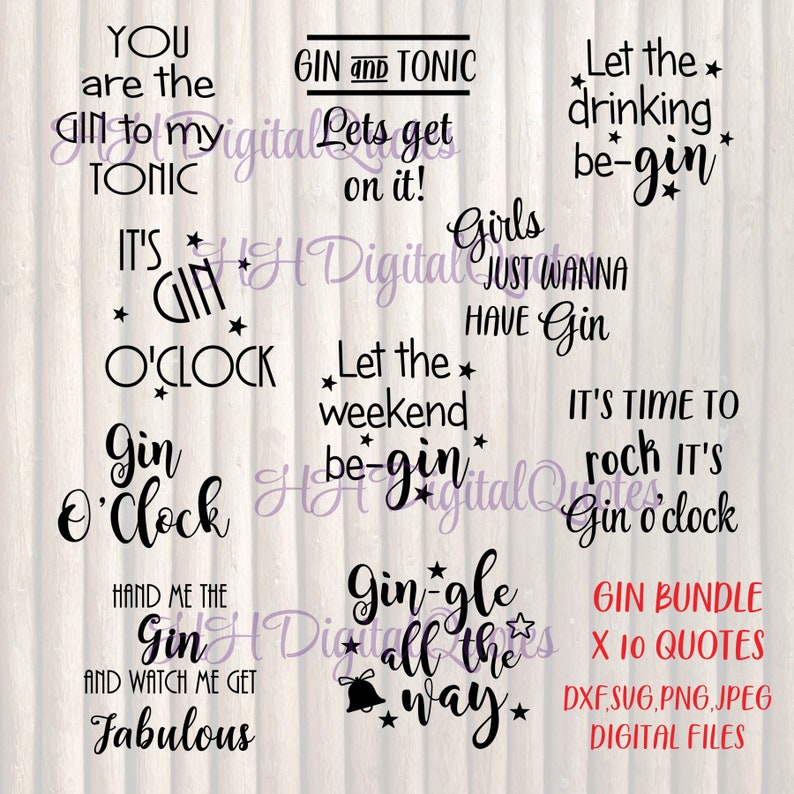 YOU
are the
GIN to my
TONIC
GIN and TONIC
Lets get
on it!
Let the
drinking
be-gin
IT'S
GIN
O'CLOCK
Girls
JUST WANNA
HAVE Gin
Let the
weekend
be-gin
Gin
O'Clock
IT'S TIME TO
rock IT'S
Gin o'clock
HAND ME THE
Gin
AND WATCH ME GET
Fabulous
Gin-gle
all the
way
GIN BUNDLE
X 10 QUOTES
DXF,SVG,PNG,JPEG
DIGITAL FILES
HH DigitalQuotes
HH DigitalQuotes
HH DigitalQuotes
HH DigitalQuotes